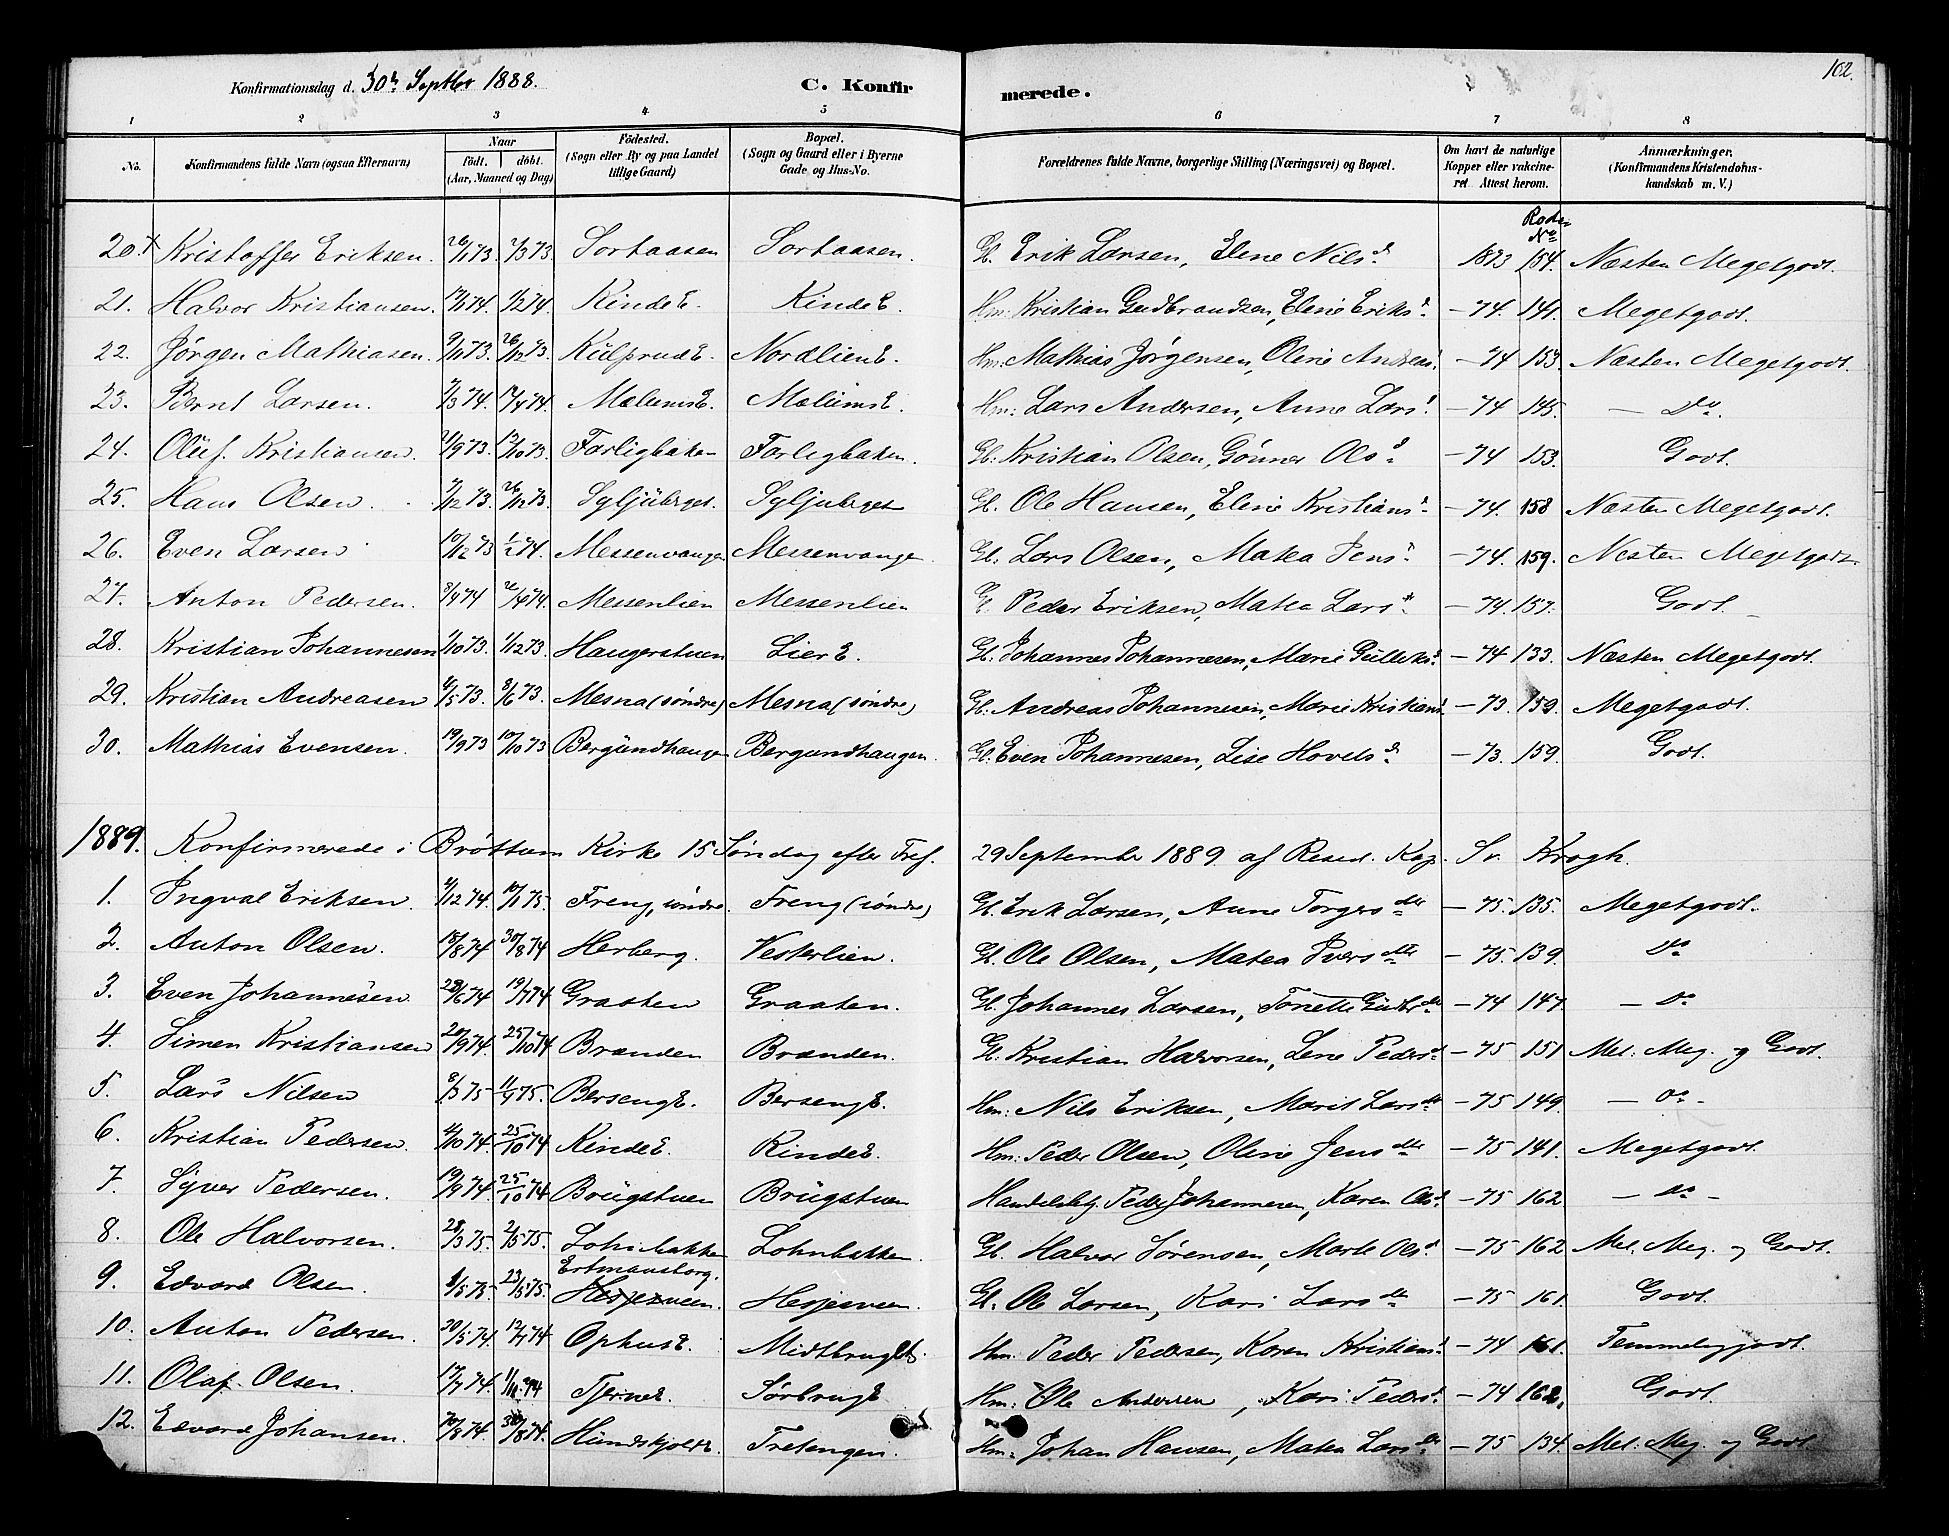 Konfirmationsdag d. 30te Septbr 1888. C. Konfirmerede. 102.
1 2 3 4 5 6 7 8
No. Konfirmandens fulde Navn (ogsaa Efternavn) Naar födt. döbt. (Aar, Maaned og Dag) Födested. (Sogn eller By og paa Landet tillige Gaard) Bopæl. (Sogn og Gaard eller i Byerne Gade og Hus-No. Forældrenes fulde Navne, borgerlige Stilling (Næringsvei) og Bopæl. Om havt de naturlige Kopper eller vakcineret. Attest herom. Anmærkninger. (Konfirmandens Kristendomskundskab m. V.)
Rode No
20. Kristoffer Eriksen. 26/1 73 2/3 73 Sortaasen Sortaasen. Gb. Erik Larsen, Elene Nilsd 1873 154. Næsten Megetgodt.
21. Halvor Kristiansen. 1/2 74 KindeE. KindeE. Hm: Kristian Gudbrandsen, Elene Eriksd – 74. 141. Megetgodt.
22. Jørgen Mathiasen. 9/11 73. 26/12 73. KulprudE. NordlienE. Hm: Mathias Jørgensen, Oline Andreasd – 74 153. Næsten Megetgodt.
23. Bernt Larsen. 7/3 74. MælumsE. MælumsE. Hm: Lars Andersen, Anne Larsd – 74 145. — Do.
24. Oluf Kristiansen. 21/9 73. 12/10 73. Farligbaken Farligbaken. Gb. Kristian Olsen, Gønner Olsd – 74 153. Godt.
25. Hans Olsen. 7/12 73. 26/12 73. Syljuberget. Syljuberget Gb. Ole Hansen, Elene Kristiansd – 74. 158 Næsten Megetgodt.
26. Even Larsen 10/12 73 1/2 74. Messenvangen Messenvangen Gb. Lars Olsen, Matea Jensd – 74. 159. Næsten Megetgodt.
27. Anton Pedersen. Messenlien Messenlien G. Peder Eriksen, Matea Larsd – 74. 157. Godt.
28. Kristian Johannesen 1/10 73. 1/12 73. Haugerstuen LierE. Gb. Johannes Johannesen, Marie Gulleksd – 74 133. Næsten Megetgodt.
29. Kristian Andreasen 4/5 73. 8/6 73. Mesna (søndre) Mesna (søndre) Gb. Andreas Johannesen, Marie Kristiansd – 73. 159. Megetgodt.
30. Mathias Evensen. 19/9 73 10/10 73 Bergundhaugen Bergundhaugen. Gb. Even Johannesen, Lise Hovelsd – 73. 159. Godt.
1889. Konfirmerede i Brøttum Kirke 15 Søndag efter Tref. 29 September 1889 af Resid. Kap. Sv. Krogh.
1. Ingval Eriksen. 4/12 74. 10/1 75. Freng, søndre. Freng (søndre) Gb. Erik Larsen, Anne Torgersdtr – 75. 135. Megetgodt.
2. Anton Olsen. 18/8 74 30/8 74 Herberg. Vesterlien. Gb. Ole Olsen, Matea Iversdtr – 75. 139. Do
3. Even Johannesen 28/6 74 19/7 74 Graaten Graaten. Gb. Johannes Larsen, Tonette Gudbrd – 74 147. — Do
4. Simen Kristiansen 20/9 74. 25/10 74 Branden Branden. Gb. Kristian Halvorsen, Lene Pedersd – 75 151 Mel. Meg. og Godt.
5. Lars Nilsen 8/3 75 11/4 75. BersengE. BersengE. Hm: Nils Eriksen, Marit Larsd – 75 149. — Do –
6. Kristian Pedersen. 4/10 74. 25/10 74 KindeE. KindeE. Hm: Peder Olsen, Oline Jensdtr – 75 141. Megetgodt.
7. Syver Pedersen. 19/9 74. 25/10 74 Brugstuen Brugstuen Handelsbtj. Peder Johannesen, Karen Olsd – 75 162 — Do –
8. Ole Halvorsen. 28/3 75. 2/5 75. Lohnbakken Lohnbakken Gb. Halvor Sørensen, Marte Olsd – 75 162 Mel. Meg. og Godt.
9. Edvard Olsen. 1/5 75. 23/5 75. Ertmansborg. Hesjesveen. Hesjesveen. Gb. Ole Larsen, Kari Larsdtr – 75 161. Godt.
10. Anton Pedersen. 20/5 74. 12/7 74 OphusE. Midtbrug Hm: Peder Pedersen, Karen Kristiansd – 74 161. Temmelig godt.
11. Olaf Olsen. 17/7 74. TjerneE. SørbrugE Hm: Ole Andersen, Kari Pedersd – 74 162. Godt.
12. Edvard Johansen. 30/8 74. HundskjoldE. Tretengen. Hm: Johan Hansen, Matea Larsd – 75 134. Mel. Meg. og Godt.